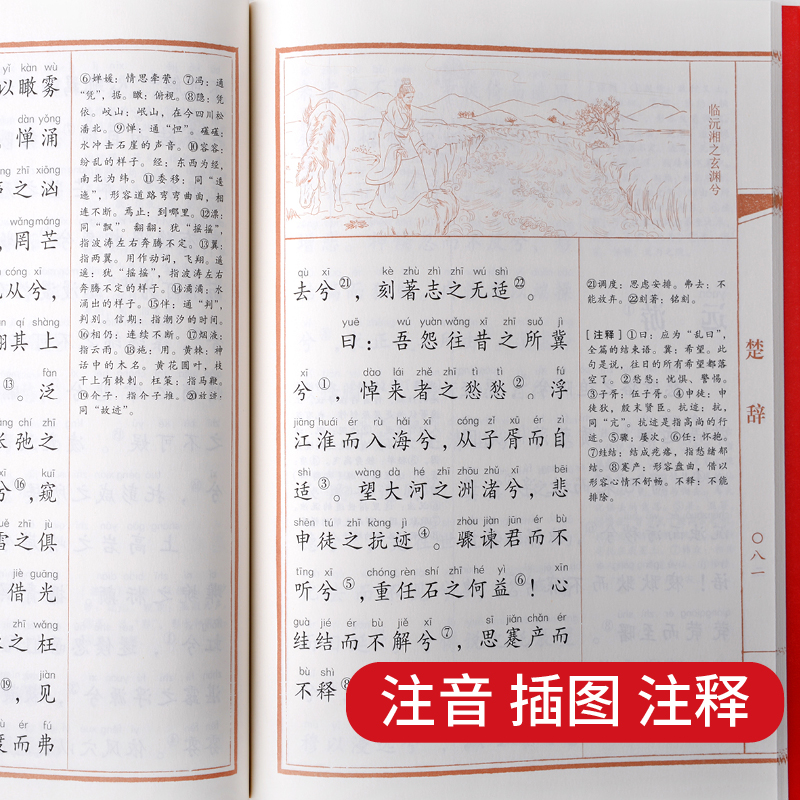 yǐ kàn wù
以瞰雾
dàn yǒng
惮涌
zhī xiōng
之汹
wǎng máng
，罔芒
cóng xī
从兮，
qí shàng
翻其上
⑬。泛
chí zhī
张弛之
xī kuī
兮⑯，窥
xuě zhī jù
雪之俱
jiè guāng
借光
zhī wǎng
之枉
jiàn
⑲，见
ér fú
度而弗
⑥婵媛：情思牵萦。⑦冯：通
“凭”，据。瞰：俯视。⑧隐：凭
依。岐山：岷山，在今四川松
潘北。⑨惮：通“怛”。礚礚：
水冲击石崖的声音。⑩容容：
纷乱的样子。经：东西为经，
南北为纬。⑪委移：同“逶
迤”，形容道路弯弯曲曲，相
连不断。焉止：到哪里。⑫漂：
同“飘”。翻翻：犹“摇摇”，
指波涛左右奔腾不定。⑬翼：
指两翼。用作动词，飞翔。遥
遥：犹“摇摇”，指波涛左右
奔腾不定的样子。⑭潏潏：水
涌出的样子。⑮伴：通“判”，
判别。信期：指潮汐的时间。
⑯相仍：连续不断。⑰烟液：
指云雨。⑱施：用。黄棘：神
话中的木名。黄花圆叶，枝
干上有棘刺。枉策：指马鞭。
⑲介子：指介子推。⑳放迹：
同“故迹”。
临沅湘之玄渊兮
qù xī kè zhù zhì zhī wú shì
去兮㉑，刻著志之无适㉒。
yuē wú yuàn wǎng xī zhī suǒ jì
曰：吾怨往昔之所冀
xī dào lái zhě zhī tì tì fú
兮①，悼来者之愁愁②。浮
jiāng huái ér rù hǎi xī cóng zǐ xū ér zì
江淮而入海兮，从子胥而自
shì wàng dà hé zhī zhōu zhǔ xī bēi
适③。望大河之洲渚兮，悲
shēn tú zhī kàng jì zhòu jiàn jūn ér bù
申徒之抗迹④。骤谏君而不
tīng xī chóng rèn shí zhī hé yì xīn
听兮⑤，重任石之何益⑥！心
guà jié ér bù jiě xī sī jiǎn chǎn ér
絓结而不解兮⑦，思蹇产而
bù shì
不释⑧
㉑调度：思虑安排。弗去：不
能放弃。㉒刻著：铭刻。
[注释]①曰：应为“乱曰”，
全篇的结束语。冀：希望。此
句是说，往日的所有希望都落
空了。②愁愁：忧惧、警惕。
③子胥：伍子胥。④申徒：申
徒狄，殷末贤臣。抗迹：抗，
同“亢”。抗迹是指高尚的行
迹。⑤骤：屡次。⑥任：怀抱。
⑦絓结：结成疙瘩，指愁绪郁
结。⑧蹇产：形容盘曲，借以
形容心情不舒畅。不释：不能
排除。
楚辞
〇八一
注音 插图 注释